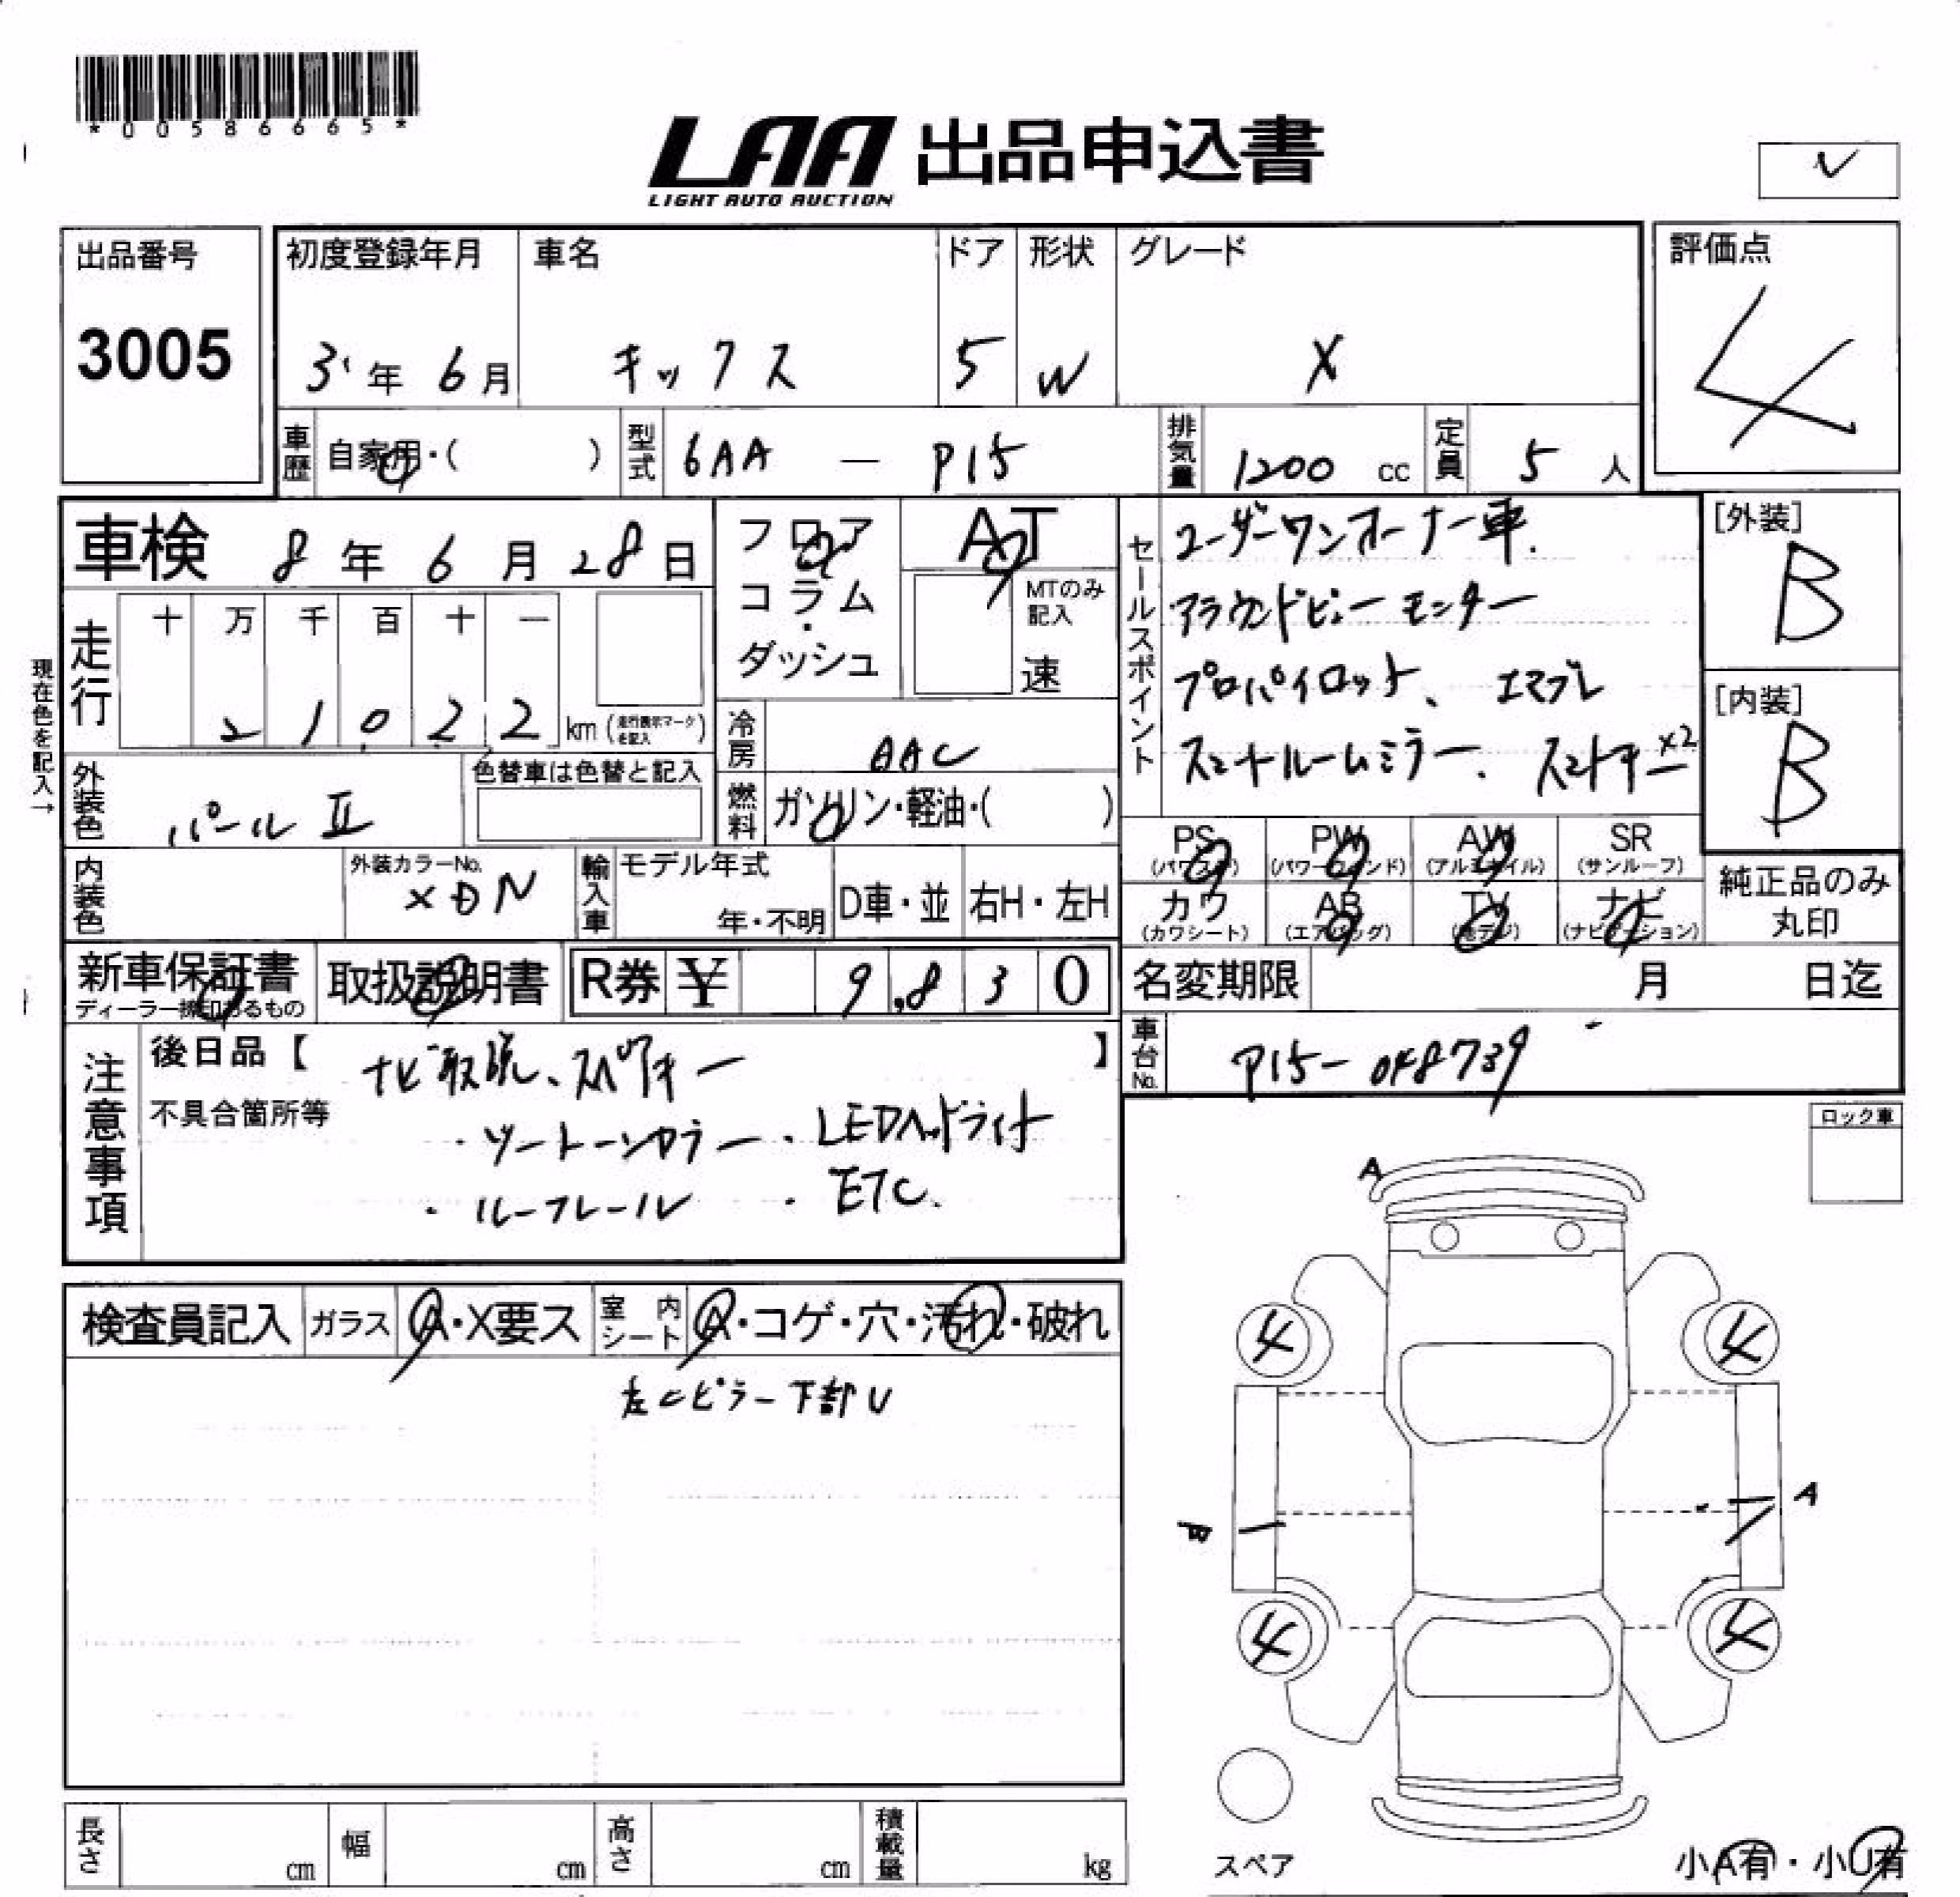 *00586665*
LAA 出品申込書
LIGHT AUTO AUCTION
出品番号
3005
初度登録年月
3年 6月
車名
キックス
ドア
5
形状
W
グレード
X
評価点
4
車歴 自家用・( )
型式 6AA — P15
排気量 1200 cc
定員 5 人
車検 8年 6月 28日
現在色を記入→
走行
十 万 千 百 十 一
2 1 0 2 2 km (走行表示マークを記入)
フロア
コラム・
ダッシュ
AT
MTのみ記入
速
冷房 AAC
燃料 ガソリン・軽油・( )
外装色 パールⅡ
色替車は色替と記入
内装色
外装カラーNo.
XDN
輸入車
モデル年式
年・不明
D車・並
右H・左H
新車保証書
ディーラー捺印あるもの
取扱説明書
R券 ¥ 9,830
セールスポイント
ユーザーワンオーナー車.
アラウンドビューモニター
プロパイロット、エマブレ
スマートルームミラー、スマートキー×2
[外装]
B
[内装]
B
PS (パワステ)
PW (パワーウィンド)
AW (アルミホイル)
SR (サンルーフ)
カワ (カワシート)
AB (エアバッグ)
TV (地デジ)
ナビ (ナビゲーション)
純正品のみ
丸印
名変期限 月 日迄
車台No. P15-048739
注意事項
後日品【 ナビ取説、スペアキー 】
不具合箇所等
・ツートーンカラー ・LEDヘッドライト
・ルーフレール ・ETC.
ロック車
検査員記入
ガラス A・X要ス
室内シート A・コゲ・穴・汚れ・破れ
左Cピラー下部U
A
4 4
A
4 4
スペア
小A有・小U有
長さ cm
幅 cm
高さ cm
積載量 kg